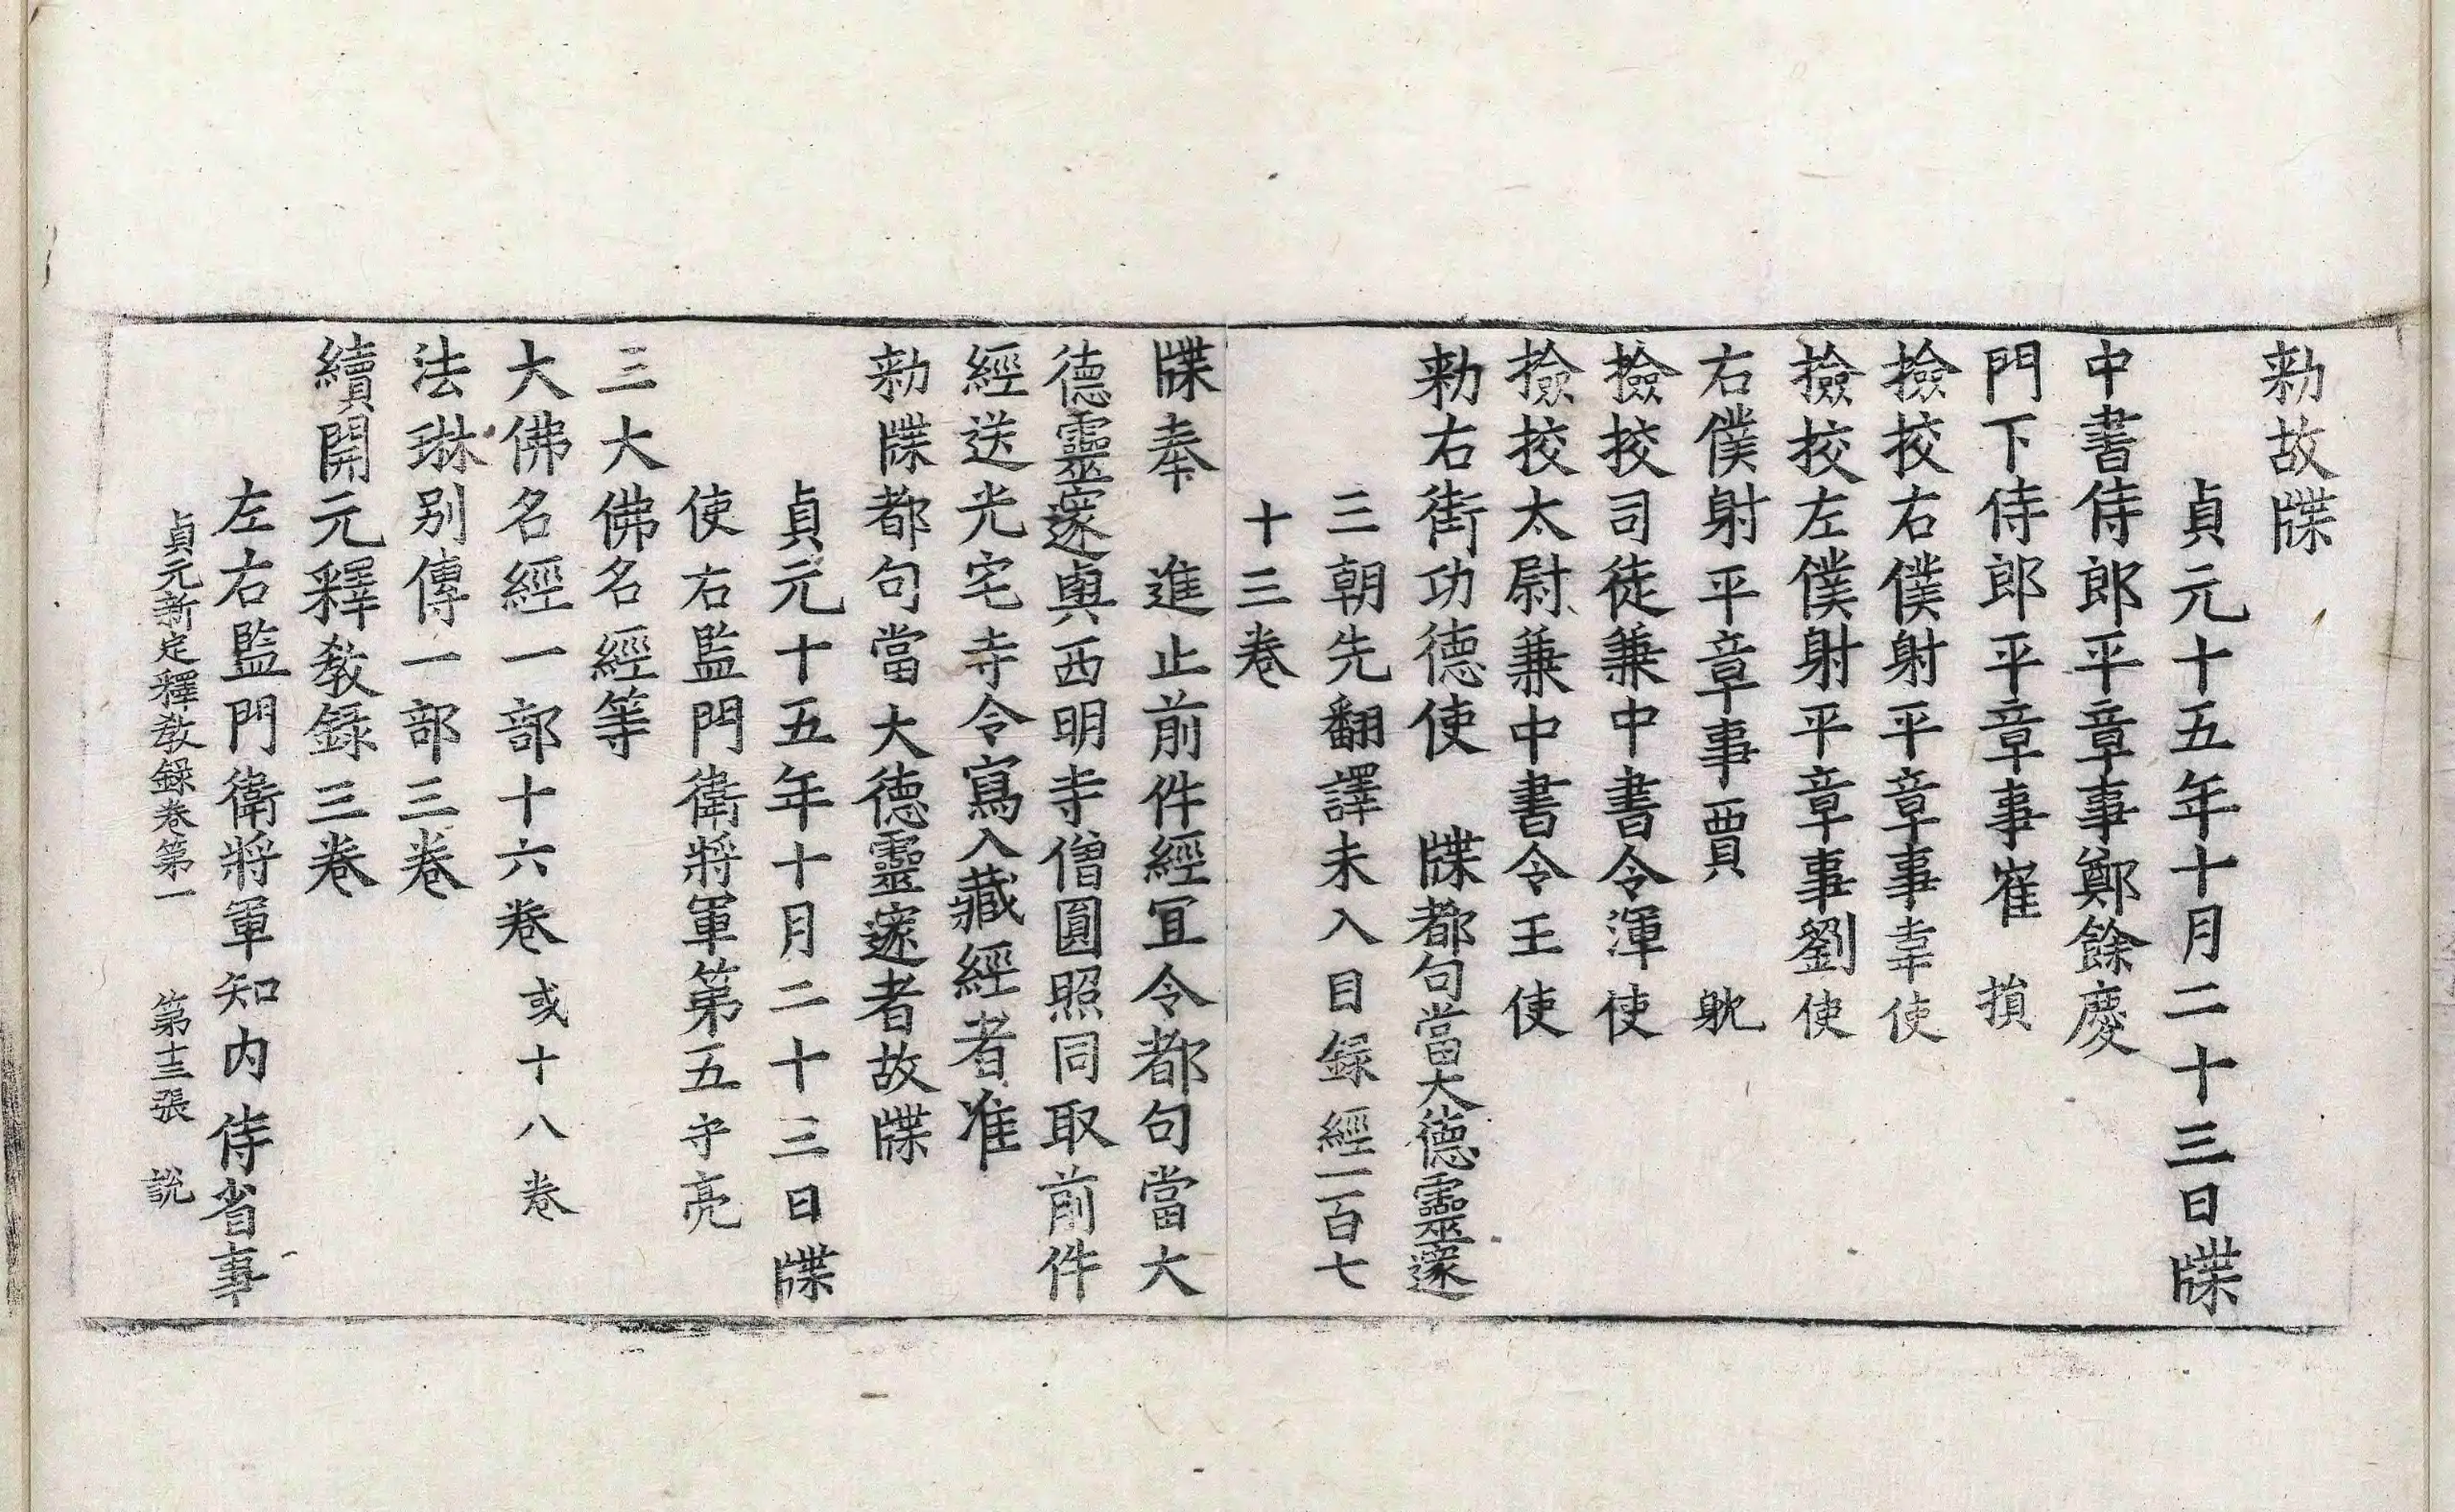 勑故牒
貞元十五年十月二十三日牒
中書侍郎平章事鄭餘慶
門下侍郎平章事崔 損
撿挍右僕射平章事韋使
撿挍左僕射平章事劉使
右僕射平章事賈 躭
撿挍司徒兼中書令渾使
撿挍太尉兼中書令王使
勑右街功德使 牒都句當大德靈邃
三朝先翻譯未入目録經一百七
十三卷
牒奉 進止前件經冝令都句當大
德靈邃與西明寺僧圓照同取前件
經送光宅寺令寫入藏經者准
勑牒都句當大德靈邃者故牒
貞元十五年十月二十三日牒
使右監門衛將軍第五守亮
三大佛名經等
大佛名經一部十六卷或十八卷
法琳别傳一部三卷
續開元釋敎録三卷
左右監門衛將軍知内侍省事
貞元新定釋敎録卷第一 第十三張 說